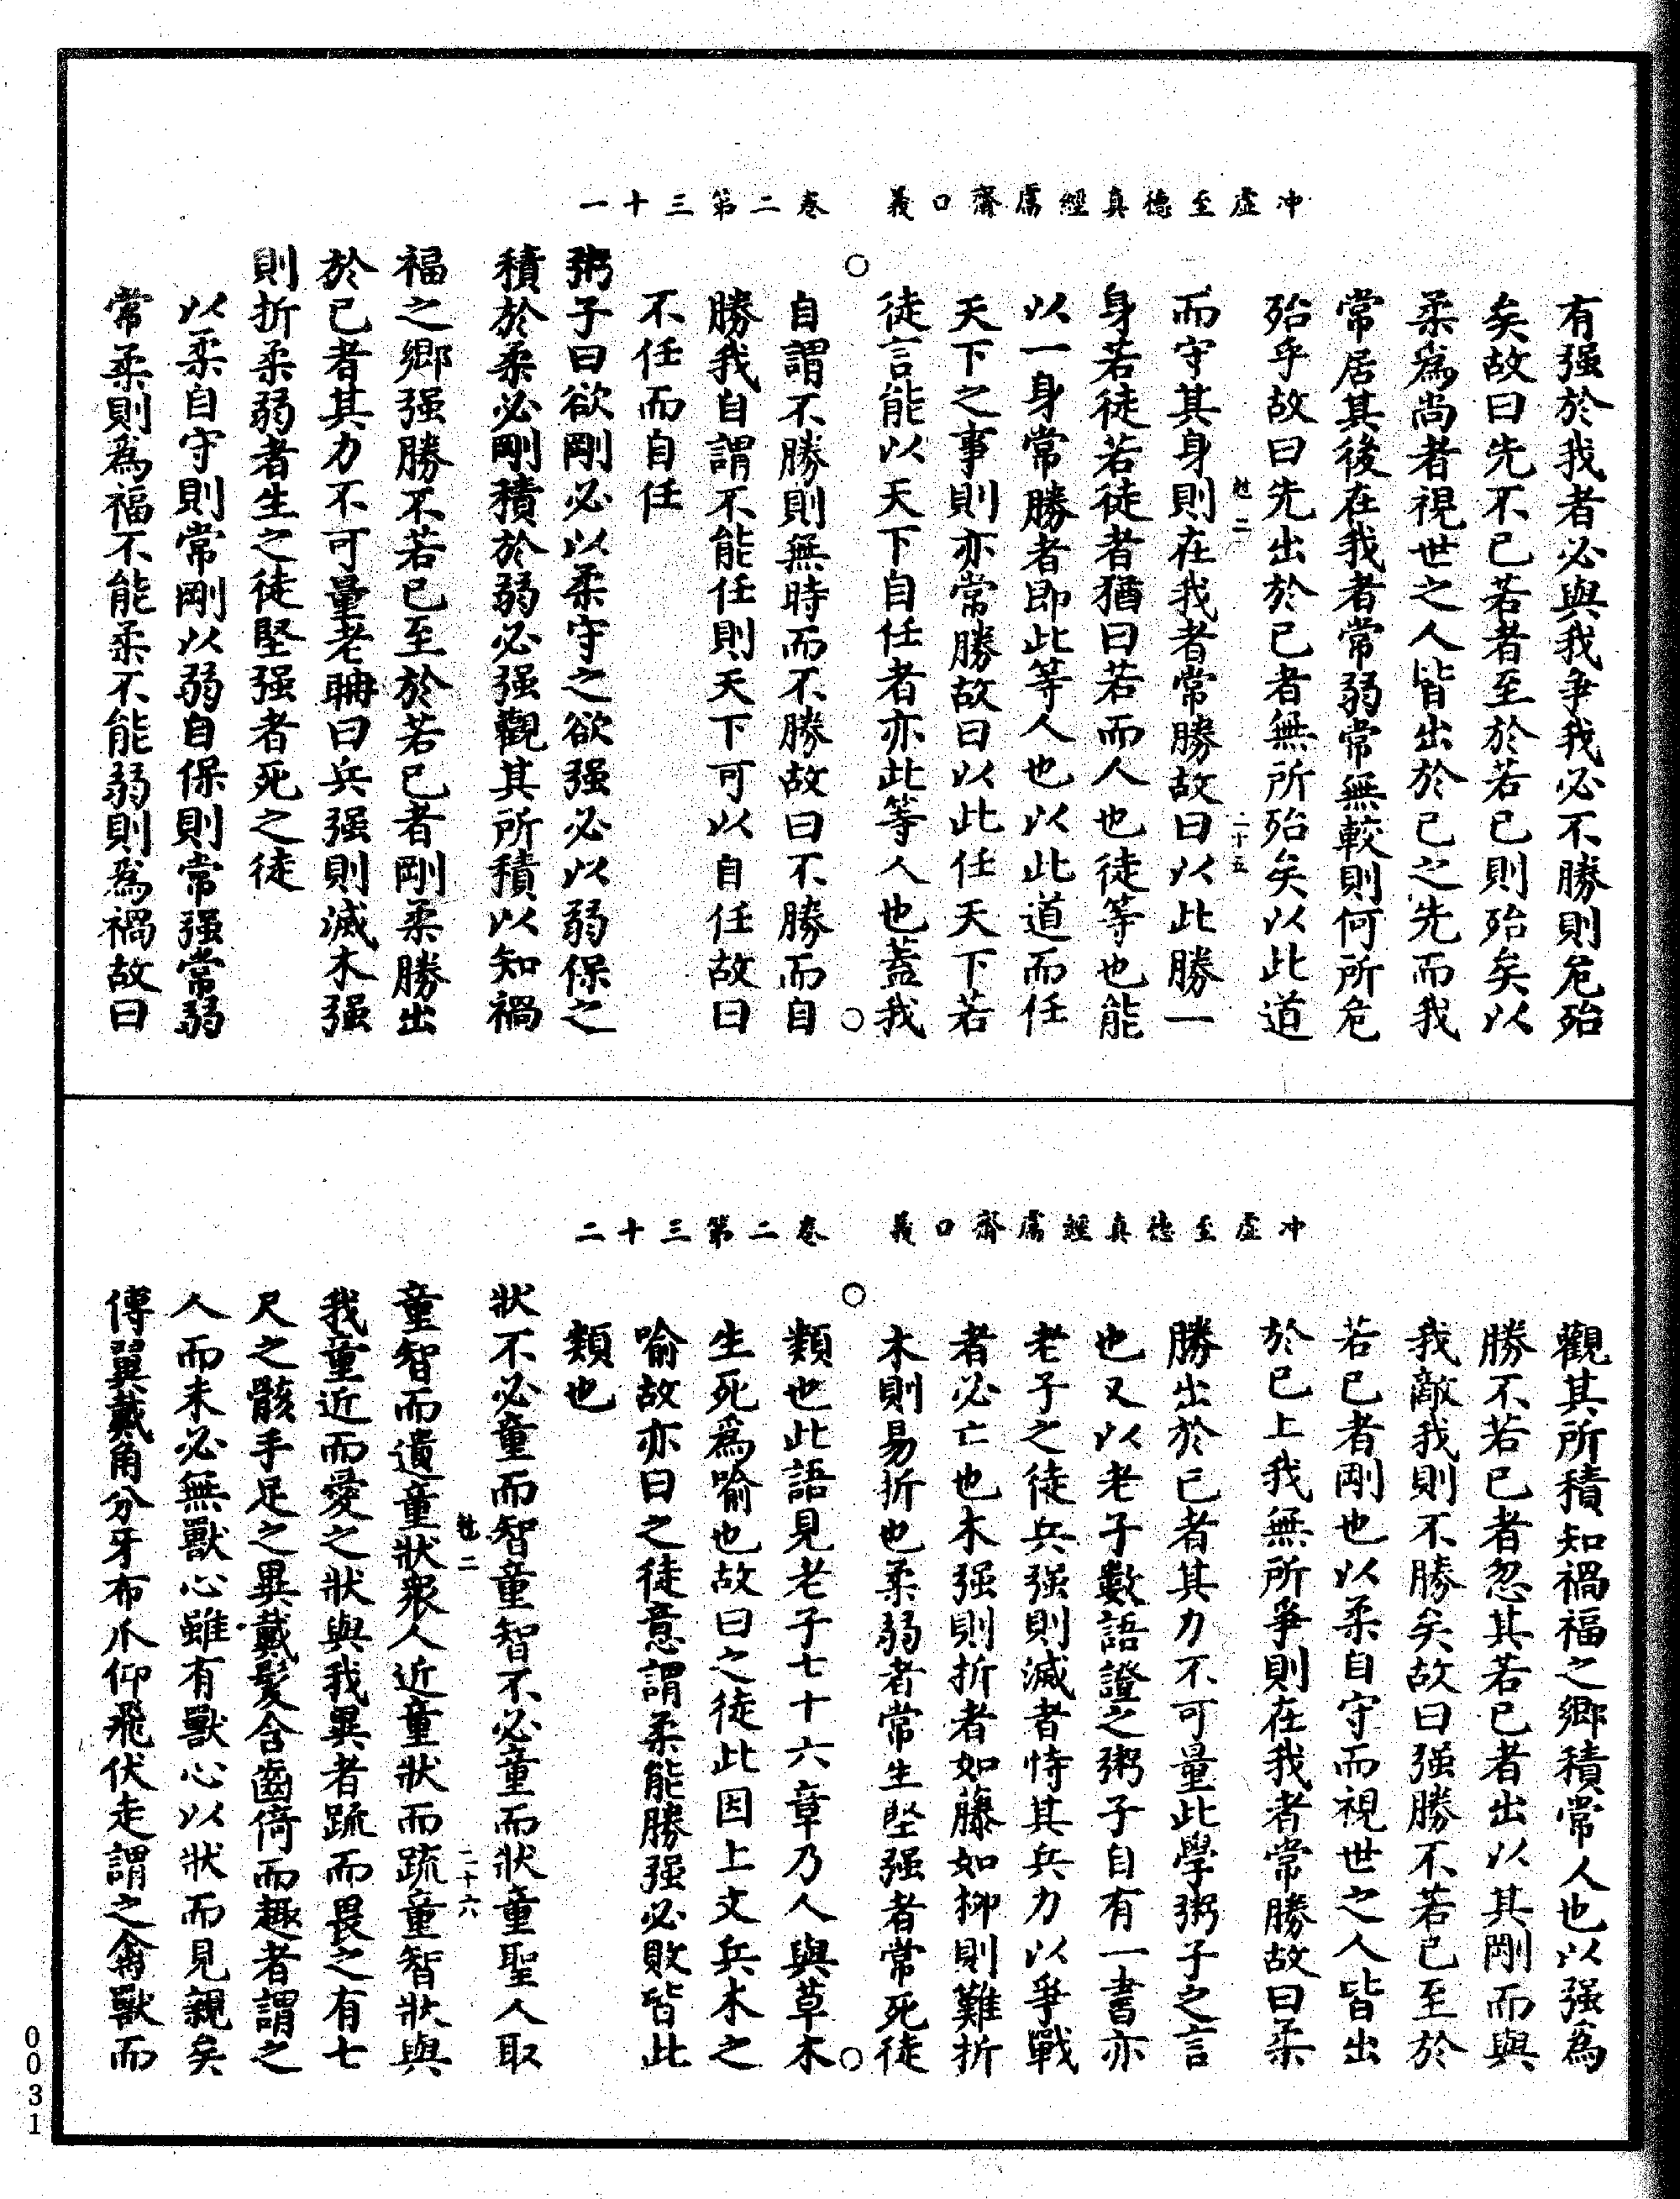 冲虛至德真經鬳齋口義　卷二第三十一
有强於我者必與我爭我必不勝則危殆
矣故曰先不已若者至於若已則殆矣以
柔爲尚者視世之人皆出於已之先而我
常居其後在我者常弱常無較則何所危
殆乎故曰先出於已者無所殆矣以此道
尅二　二十五
而守其身則在我者常勝故曰以此勝一
身若徒若徒者猶曰若而人也徒等也能
以一身常勝者即此等人也以此道而任
天下之事則亦常勝故曰以此任天下若
徒言能以天下自任者亦此等人也蓋我
○　○
自謂不勝則無時而不勝故曰不勝而自
勝我自謂不能任則天下可以自任故曰
不任而自任
粥子曰欲剛必以柔守之欲强必以弱保之
積於柔必剛積於弱必强觀其所積以知禍
福之鄉强勝不若已至於若已者剛柔勝出
於已者其力不可量老聃曰兵强則滅木强
則折柔弱者生之徒堅强者死之徒
以柔自守則常剛以弱自保則常强常弱
常柔則爲福不能柔不能弱則爲禍故曰
冲虛至德真經鬳齋口義　卷二第三十二
觀其所積知禍福之鄉積常人也以强爲
勝不若已者忽其若已者出以其剛而與
我敵我則不勝矣故曰强勝不若已至於
若已者剛也以柔自守而視世之人皆出
於已上我無所爭則在我者常勝故曰柔
勝出於已者其力不可量此學粥子之言
也又以老子數語證之粥子自有一書亦
老子之徒兵强則滅者恃其兵力以爭戰
者必亡也木强則折者如藤如柳則難折
木則易折也柔弱者常生堅强者常死徒
○　○
類也此語見老子七十六章乃人與草木
生死爲喻也故曰之徒此因上文兵木之
喻故亦曰之徒意謂柔能勝强必敗皆此
類也
狀不必童而智童智不必童而狀童聖人取
尅二　二十六
童智而遺童狀衆人近童狀而疏童智狀與
我童近而愛之狀與我異者疏而畏之有七
尺之骸手足之異戴髮含齒倚而趣者謂之
人而未必無獸心雖有獸心以狀而見親矣
傅翼戴角分牙布爪仰飛伏走謂之禽獸而
0031